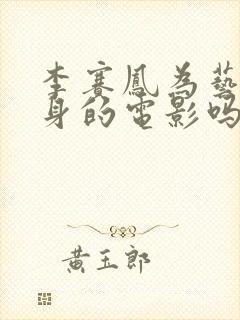 李賽鳳為藝
身的電影嗎
黃玉郎